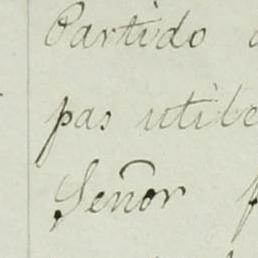 Partido
pas utile
Señor